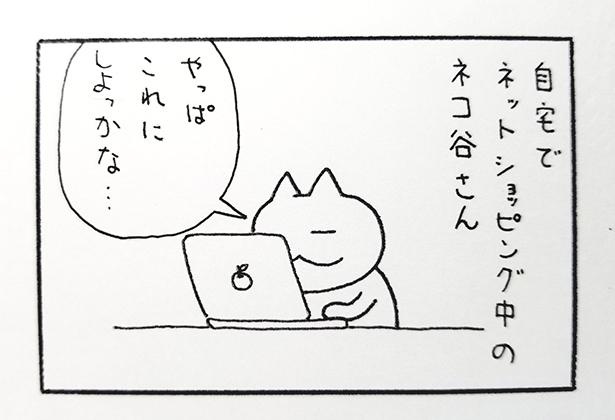 自宅で
ネットショッピング中の
ネコ谷さん
やっぱ
これに
しよっかな…